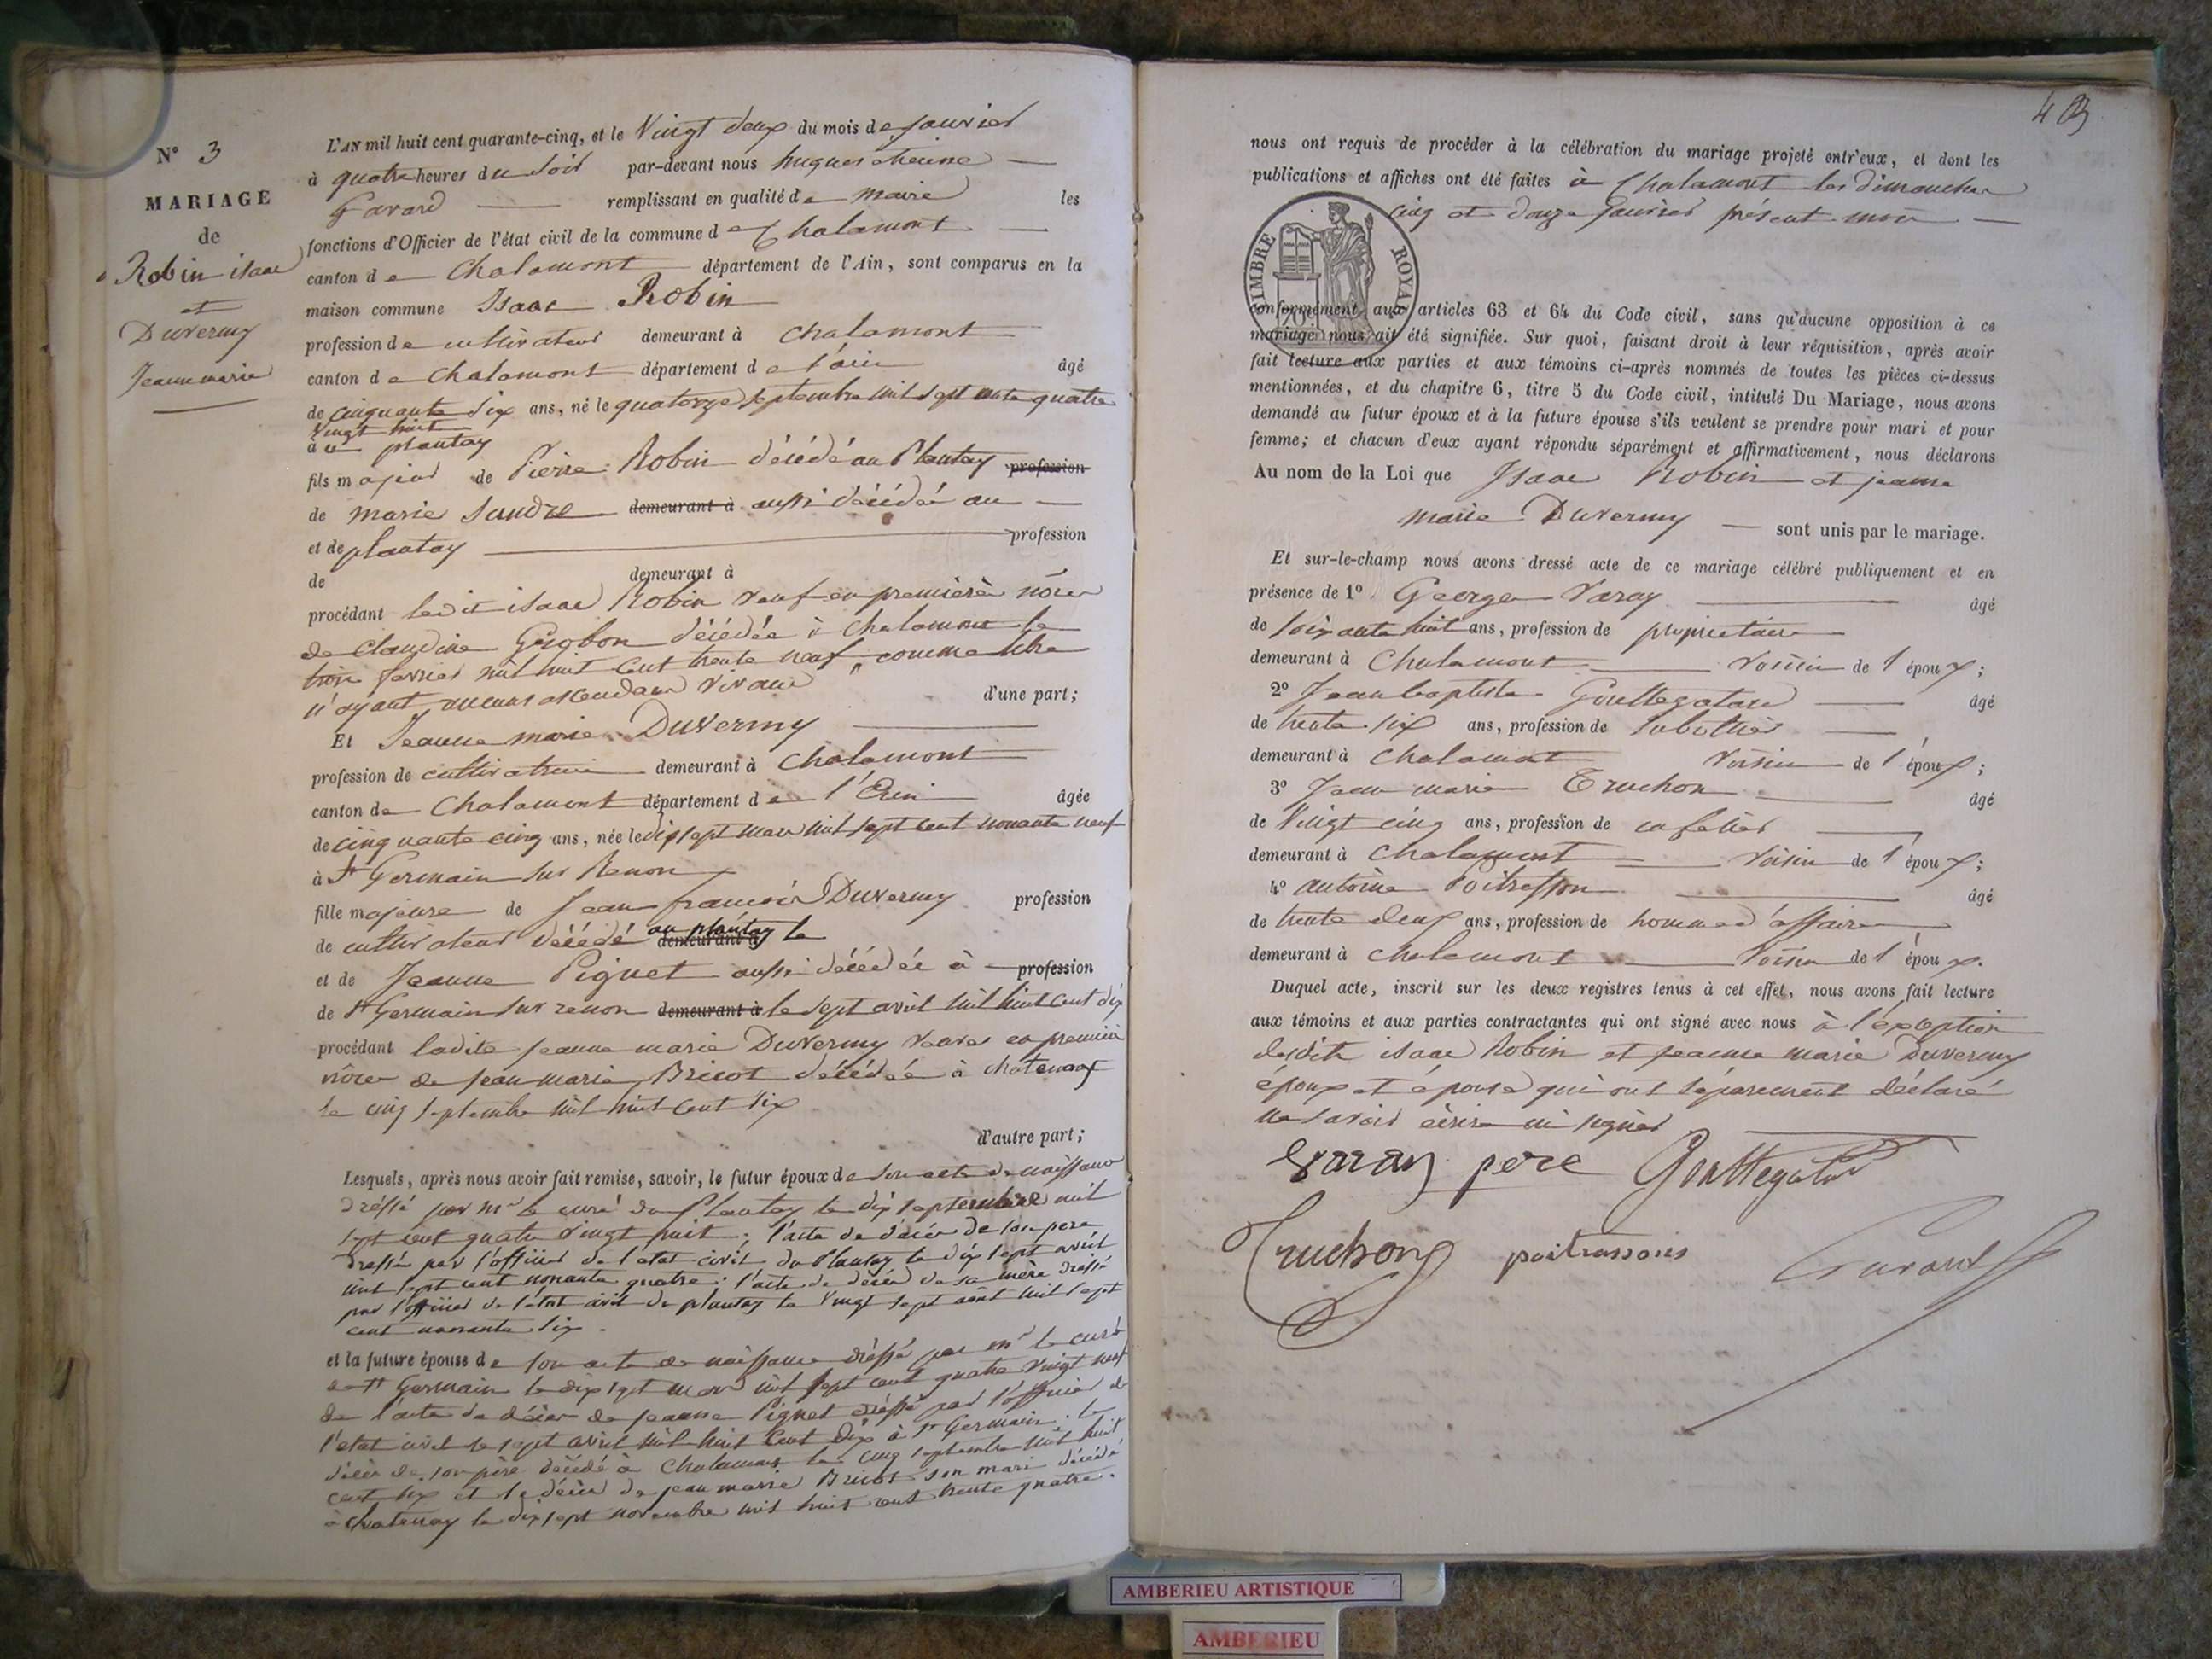 N° 3
MARIAGE
de
Robin isaac
et
Duvermy
Jeanne marie
L'AN mil huit cent quarante-cinq, et le Vingt deux du mois de janvier
à quatre heures du soir par-devant nous hugues étienne
Gavard remplissant en qualité de maire les
fonctions d'Officier de l'état civil de la commune de Chalamont
canton de Chalamont département de l'Ain, sont comparus en la
maison commune Isaac Robin
profession de cultivateur demeurant à chalamont
canton de chalamont département de l'ain âgé
de cinquante six ans, né le quatorze septembre mil sept cent quatre
vingt huit
au plantay
fils majeur de Pierre Robin décédé au Plantay profession
de marie Sandre demeurant à aussi décédée au
et de plantay profession
de demeurant à
procédant ledit isaac Robin veuf en premières nôces
de Claudine décédée à chalamont le
trois fevrier mil huit cent trente neuf, comme libre
n'ayant aucuns ascendans vivans d'une part;
Et Jeanne marie Duvermy
profession de cultivatrice demeurant à chalamont
canton de Chalamont département de l'Ain âgée
de cinquante cinq ans, née le dix sept mars mil sept cent nonante neuf
à St Germain sur Renon
fille majeure de Jean françois Duvermy profession
de cultivateur décédé au plantay demeurant à le
et de Jeanne Pignet aussi décédée à profession
de St Germain sur renon demeurant à le sept avril mil huit cent dix
procédant ladite jeanne marie Duvermy veuve en première
nôces de jean marie Bricot décédée à chatenay
le cinq septembre mil huit cent six
d'autre part;
Lesquels, après nous avoir fait remise, savoir, le futur époux de son acte de naissance
dréssé par mr le curé du Plantay le dix septembre mil
sept cent quatre vingt huit; l'acte de décès de son pere
dressé par l'officier de l'état civil du Plantay le dix sept avril
mil sept cent nonante quatre; l'acte de décès de sa mère dressé
par l'officier de l'état civil du plantay le vingt sept août mil sept
cent nonante six.
et la future épouse de son acte de naissance dréssé par mr le curé
de St Germain le dix sept mars mil sept cent quatre vingt neuf
de l'acte de décès de jeanne Pignet dréssé par l'officier de
l'état civil le sept avril mil huit cent dix à St Germain. le
décès de son père décédé à Chalamont le cinq septembre mil huit
cent six et le décès de jean marie Bricot son mari décédé
à chatenay le dix sept novembre mil huit cent trente quatre.
nous ont requis de procéder à la célébration du mariage projeté entr'eux, et dont les
publications et affiches ont été faites à Chalamont les dimanches
cinq et douze janvier présent mois
TIMBRE ROYAL
conformément aux articles 63 et 64 du Code civil, sans qu'aucune opposition à ce
mariage nous ait été signifiée. Sur quoi, faisant droit à leur réquisition, après avoir
fait lecture aux parties et aux témoins ci-après nommés de toutes les pièces ci-dessus
mentionnées, et du chapitre 6, titre 5 du Code civil, intitulé Du Mariage, nous avons
demandé au futur époux et à la future épouse s'ils veulent se prendre pour mari et pour
femme; et chacun d'eux ayant répondu séparément et affirmativement, nous déclarons
Au nom de la Loi que Isaac Robin et jeanne
marie Duvermy sont unis par le mariage.
Et sur-le-champ nous avons dressé acte de ce mariage célébré publiquement et en
présence de 1° George Varay âgé
de soixante huit ans, profession de propriétaire
demeurant à Chalamont voisin de l'époux;
2° Jean baptiste Gouttegatas âgé
de trente six ans, profession de sabottier
demeurant à chalamont voisin de l'époux;
3° Jean marie Truchon âgé
de vingt cinq ans, profession de cafetier
demeurant à chalamont voisin de l'époux;
4° antoine Poitrasson âgé
de trente deux ans, profession de homme d'affaire
demeurant à chalamont voisin de l'époux.
Duquel acte, inscrit sur les deux registres tenus à cet effet, nous avons fait lecture
aux témoins et aux parties contractantes qui ont signé avec nous à l'exception
desdits isaac Robin et jeanne marie Duvermy
époux et épouse qui ont séparement déclaré
ne savoir écrire ni signer
Varay pere Gouttegatas
Truchon poitrasson Gavard
AMBERIEU ARTISTIQUE
AMBERIEU